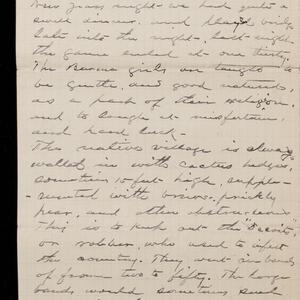 New Years night - we had quite a
swell dinner. and play'd bridge
late into the night, last night
the game ended at one thirty.
The Burma girls are taught to
be gentle, and good natured,
as a part of their religion,
and to laugh at misfortune
and hard luck -
The native village is always
walled in with cactus hedges,
sometimes 10 feet high, supple-
-mental with brown prickly
pear, and other
This is to keep out the "Dacoits",
or robber, who used to infest
the country. They went in bands
of from two to fifty. The large
bands would sometimes